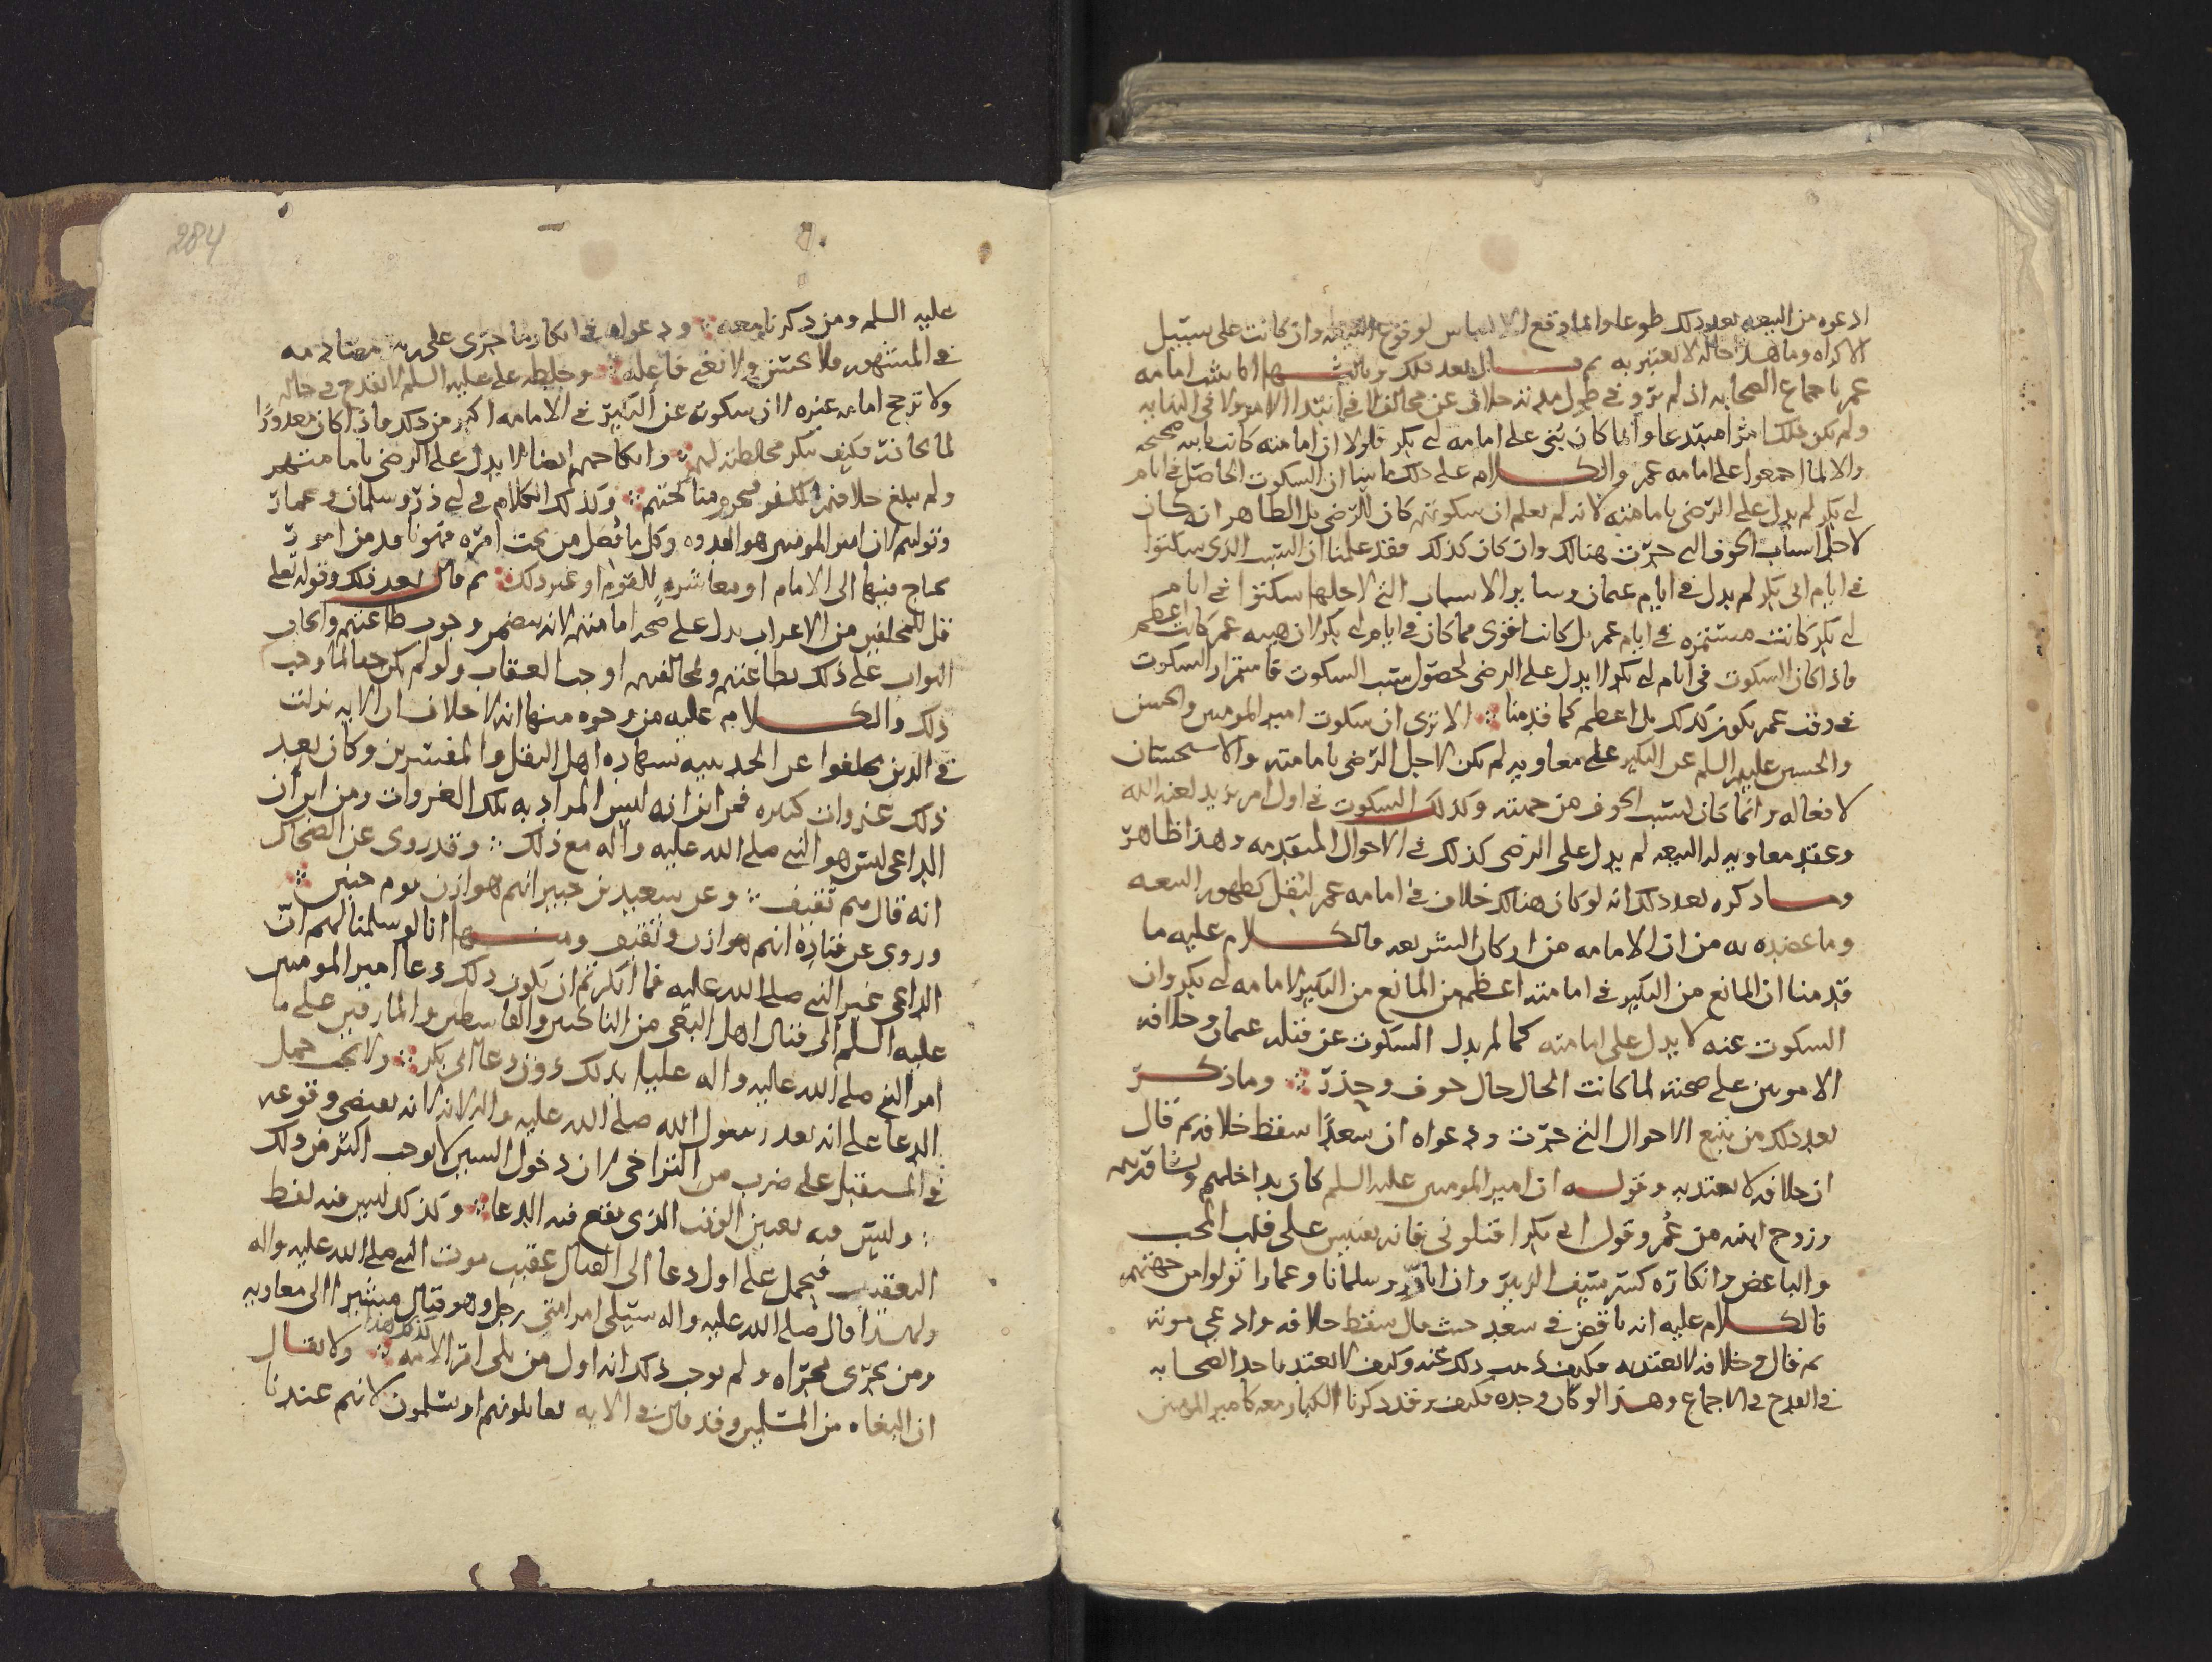 ادعوه من البيعه بعد ذلك طوعا وانما وقع الالتباس لوقوع البيعه وان كانت على سبيل
الاكراه وما هذا حاله لا يعتبر به ثم قال بعد ذلك وبالثبتها انما ثبت امامه
عمر باجماع الصحابه اذ لم يرو في طول مدته خلاف عن مخالف لا في ابتدا الامر ولا في النهايه
ولم يكن ذلك امرا مبتدعا وانما كان بني على امامه ابي بكر فلولا ان امامته كانت ثابته صحيحه
والا لما اجمعوا على امامه عمر والكلام على ذلك ما بينا ان السكوت الحاصل في ايام
ابي بكر لم يدل على الرضى بامامته لانه لم يعلم ان سكوتهم كان للرضى بل الظاهر انه كان
لاجل اسباب الخوف التي جرت هنالك وان كان كذلك فقد علمنا ان السبب الذي سكتوا
في ايام ابي بكر لم يدل في ايام عثمان وساير الاسباب التي لاجلها سكتوا في ايام
ابي بكر كانت مستمره في ايام عمر بل كانت اقوى مما كان في ايام ابي بكر لان هيبه عمر كانت اعظم
فاذا كان السكوت في ايام ابي بكر لا يدل على الرضى لحصول سبب السكوت فاستمرار السكوت
في وقت عمر يكون كذلك بل اعظم كما قدمنا ؞ الا ترى ان سكوت امير المومنين والحسن
والحسين عليهم السلم عن النكير على معاويه لم يكن لاجل الرضى بامامته والاستحسان
لافعاله وانما كان لسبب الخوف من جهته وكذلك السكوت في اول امر يزيد لعنه الله
وعقد معاويه له البيعه لم يدل على الرضى كذلك في الاحوال المتقدمه وهذا ظاهر
وما ذكره بعد ذلك انه لو كان هنالك خلاف في امامه عمر لنقل كظهور البيعه
وما عضده به من ان الامامه من اركان الشريعه فالكلام عليه ما
قدمنا ان المانع من النكير في امامته اعظم من المانع من النكير لامامه ابي بكر وان
السكوت عنه لا يدل على امامته كما لم يدل السكوت عن قتله عثمان وخلافه
الامويين على صحته لما كانت الحال حال خوف وحذر ؞ وما ذكر
بعد ذلك من تتبع الاحوال التي جرت ودعواه ان سعدا سقط خلافه ثم قال
ان خلافه لا يعتد به وقوله ان امير المومنين عليه السلم كان يداخلهم ويشاورهم
وزوج ابنته من عمر وقول ابي بكر اقتلوني فانه يفيس على قلب المحب
والباغض وانكاره كسر سيف الزبير وان اباذر وسلمانا وعمارا تولوا من جهتهم
فالكلام عليه انه ناقض في سعد حيث قال سقط خلافه وادعى موته
ثم قال وخلافه لا يعتد به فكيف ذهب ذلك عنه وكيف لا يعتد باحد الصحابه
في القدح في الاجماع وهذا لو كان وحده فكيف وقد ذكرنا الكبار معه كامير المومنين
284
عليه السلم ومن ذكرنا معه ؞ ودعواه في انكار ما جرى على مصادمه
في المشهور فلا يحتشم ولا نعي فاعله ؞ وخلطه علي عليه السلم لا تقدح في حاله
ولا ترجح امامه غيره لان سكوته عن النكير في الامامه اكبر من ذلك فاذا كان معذورا
لما جانت فكيف تنكر مخالطته لهم ؞ وانكاحهم ايضا لا يدل على الرضى بامامتهم
ولم يبلغ خلافهم الكفر فيحرم مناكحتهم ؞ وكذلك الكلام في ابي ذر وسلمان وعمار
وتوليهم لان امير المومنين هو القدوه وكل ما فعل من تحت امره فهو نافذ من امور
يحتاج فيها الى الامام او معاشره للقوم او غير ذلك ؞ ثم قال بعد ذلك وقوله تعلى
قل للمخلفين من الاعراب يدل على صحه امامتهم لانه يتضمن وجوب طاعتهم وايجاب
الثواب على ذلك بطاعتهم ومخالفتهم اوجب العقاب ولو لم يكن حقا لما وجب
ذلك والكلام عليه من وجوه منها انه لا خلاف ان الايه نزلت
في الذين تخلفوا عن الحديبيه بشهاده اهل النقل والمفسرين وكان بعد
ذلك غزوات كثيره فمن اين انه ليس المراد به تلك الغزوات ومن اين ان
الداعي ليس هو النبي صلى الله عليه واله مع ذلك ؞ وقد روي عن الضحاك
انه قال هم ثقيف ؞ وعن سعيد بن جبير انهم هوازن يوم حنين ؞
وروي عن قتاده انهم هوازن وثقيف ومنها انا لو سلمنا لهم ان
الداعي غير النبي صلى الله عليه فما انكرتم ان يكون ذلك دعا امير المومنين
عليه السلم الى قتال اهل البغي من الناكثين والقاسطين والمارقين على ما
امر النبي صلى الله عليه واله عليا بذلك دون دعا ابي بكر ؞ ولا يجب حمل
الدعا على انه بعد رسول الله صلى الله عليه واله لانه يقتضي وقوعه
في المستقبل على ضرب من التراخي لان دخول السين لا يوجب اكثر من ذلك
؞ وليس فيه تعيين الوقت الذي يقع فيه الدعا ؞ وكذلك ليس فيه لفظ
التعقيب فيحمل على اول دعا الى القتال عقيب موت النبي صلى الله عليه واله
ولهذا قال صلى الله عليه واله سيلي امر امتي رجل وهو قتال مشيرا الى معاويه
ومن يجري مجراه ولم يوجب ذلك انه اول من يلي امر الامه كذلك هذا ؞ ولا يقال
ان البغاه من المسلمين وقد قال في الايه تقاتلونهم او يسلمون لانهم عندنا